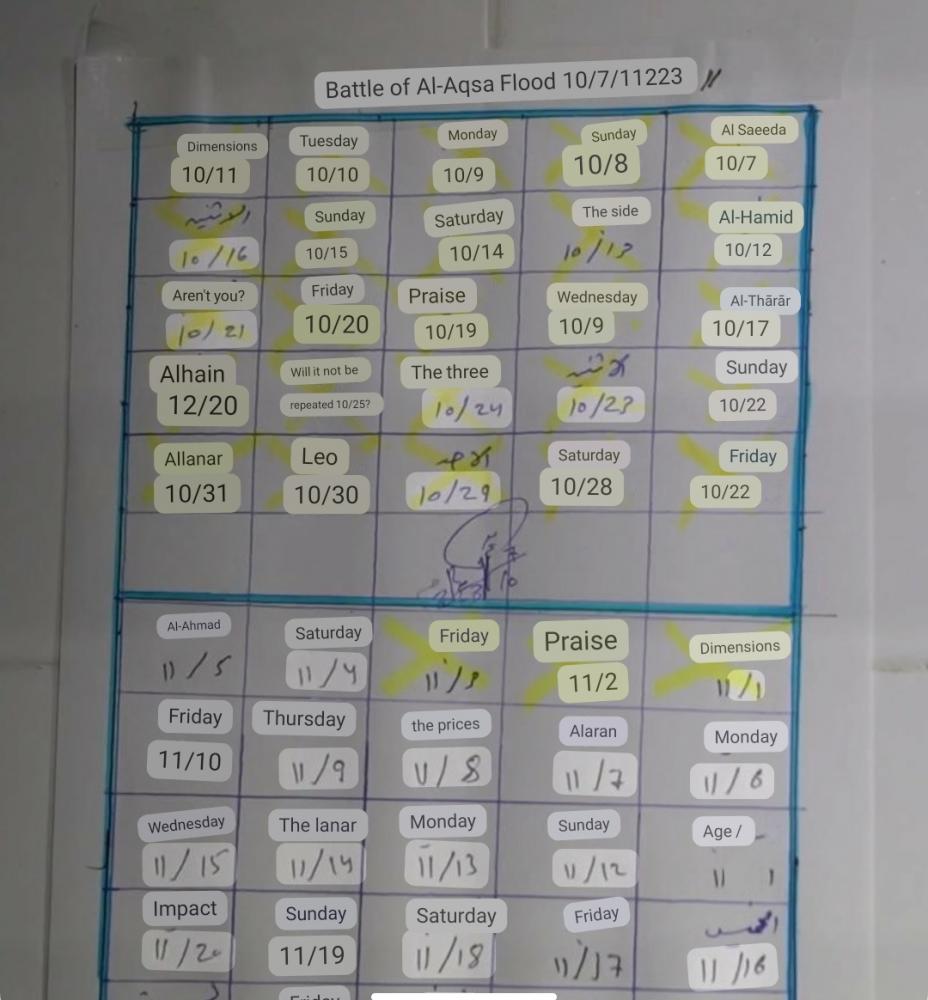 Battle of Al-Aqsa Flood 10/7/11223
Dimensions Tuesday Monday Sunday Al Saeeda
10/11 10/10 10/9 10/8 10/7
الاثنين Sunday Saturday The side Al-Hamid
10/16 10/15 10/14 10/13 10/12
Aren't you? Friday Praise Wednesday Al-Thārār
10/21 10/20 10/19 10/9 10/17
Alhain Will it not be The three Sunday
12/20 repeated 10/25? 10/24 10/23 10/22
Allanar Leo Saturday Friday
10/31 10/30 10/29 10/28 10/22
Al-Ahmad Saturday Friday Praise Dimensions
11/5 11/4 11/3 11/2 11/1
Friday Thursday the prices Alaran Monday
11/10 11/9 11/8 11/7 11/6
Wednesday The lanar Monday Sunday Age /
11/15 11/14 11/13 11/12 11 1
Impact Sunday Saturday Friday الخميس
11/20 11/19 11/18 11/17 11/16
Friday